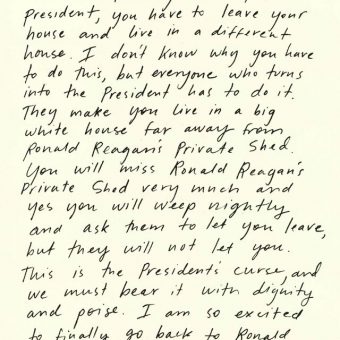 President, you have to leave your
house and live in a different
house. I don't know why you have
to do this, but everyone who turns
into the President has to do it.
They make you live in a big
white house far away from
Ronald Reagan's Private Shed.
You will miss Ronald Reagan's
Private Shed very much and
yes you will weep nightly
and ask them to let you leave,
but they will not let you.
This is the President's curse, and
we must bear it with dignity
and poise. I am so excited
to finally go back to Ronald